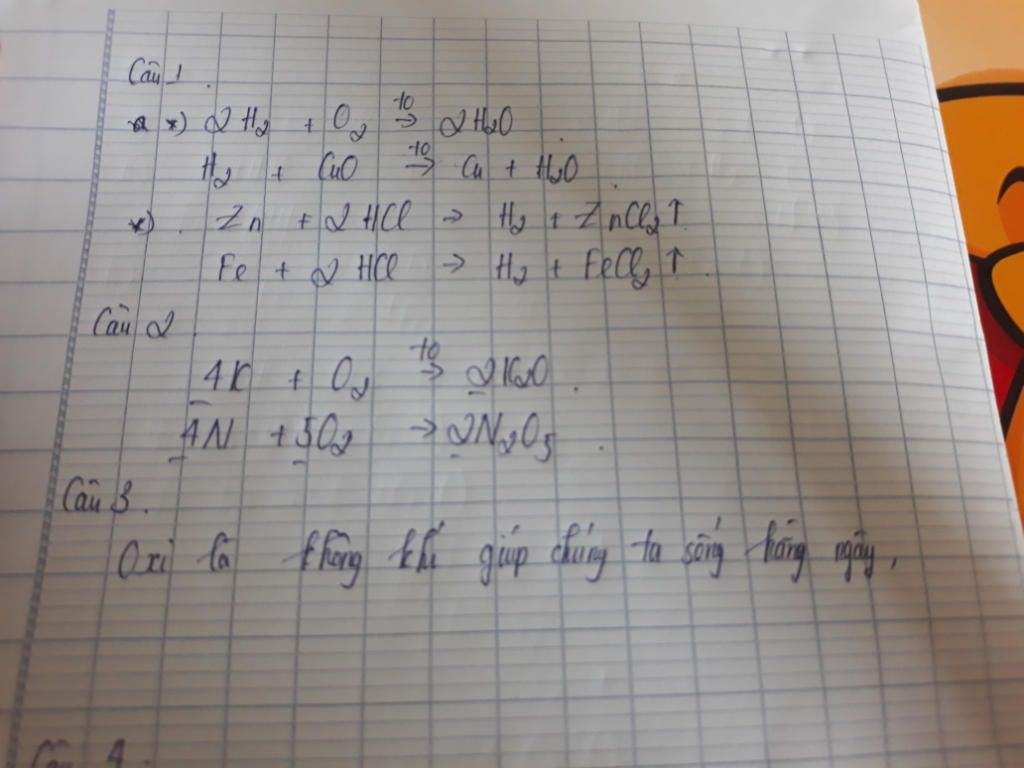 Câu 1.
*) 2H₂ + O₂ →(t⁰) 2H₂O.
H₂ + CuO →(t⁰) Cu + H₂O.
*). Zn + 2HCl → H₂ + ZnCl₂↑.
Fe + 2HCl → H₂ + FeCl₂↑.
Câu 2.
4K + O₂ →(t⁰) 2K₂O.
4N + 5O₂ → 2N₂O₅.
Câu 3.
Oxi là không khí giúp chúng ta sống hằng ngày,
Câu 4.